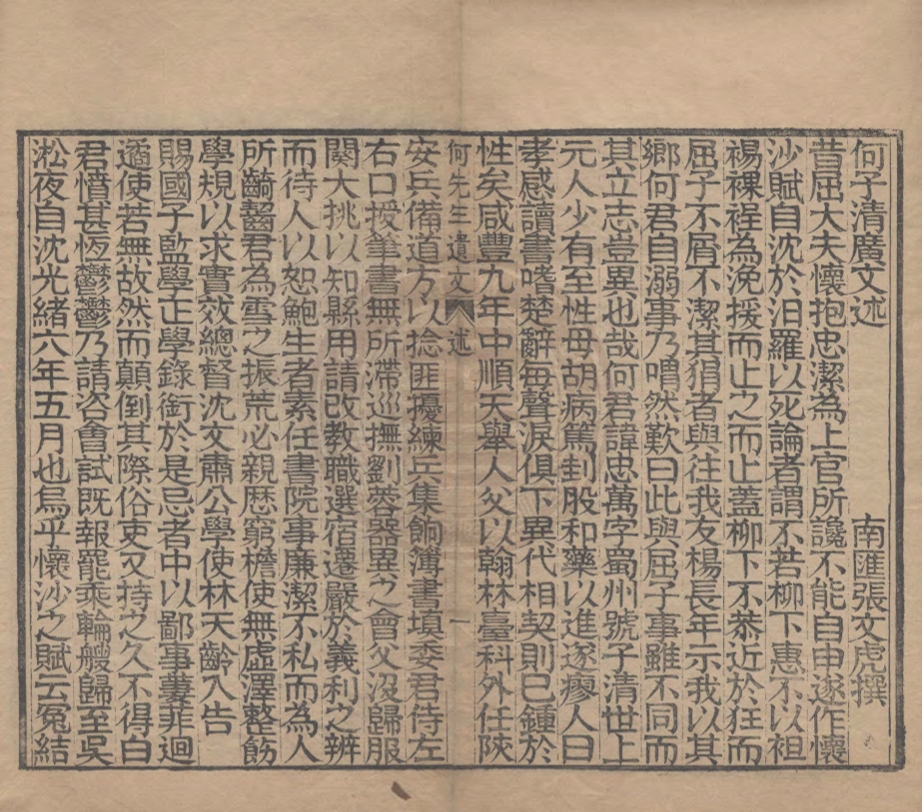 何子清廣文述
南匯張文虎撰
昔屈大夫懷抱忠潔為上官所讒不能自申遂作懷
沙賦自沈於汨羅以死論者謂不若柳下惠不以袒
裼裸裎為浼援而止之而止蓋柳下不恭近於狂而
屈子不屑不潔其狷者與往我友楊長年示我以其
鄉何君自溺事乃喟然歎曰此與屈子事雖不同而
其立志豈異也哉何君諱忠萬字蜀州號子清世上
元人少有至性母胡病篤刲股和藥以進遂瘳人曰
孝感讀書嗜楚辭每聲淚俱下異代相契則已鍾於
性矣咸豐九年中順天舉人父以翰林臺科外任陝
何先生遺文 述 一
安兵備道方以捻匪擾練兵集餉簿書填委君侍左
右口授筆書無所滯巡撫劉蓉器異之會父沒歸服
闋大挑以知縣用請改教職選宿遷嚴於義利之辨
而待人以恕鮑生者素任書院事廉潔不私而為人
所齮齕君為雪之振荒必親歷窮檐使無虛澤整飭
學規以求實效總督沈文肅公學使林天齡入告
賜國子監學正學錄銜於是忌者中以鄙事蕓菲迴
遹使若無故然而顛倒其際俗吏又持之久不得白
君憤甚恆鬱鬱乃請咨會試既報罷乘輪艘歸至吳
淞夜自沈光緒六年五月也烏乎懷沙之賦云冤結